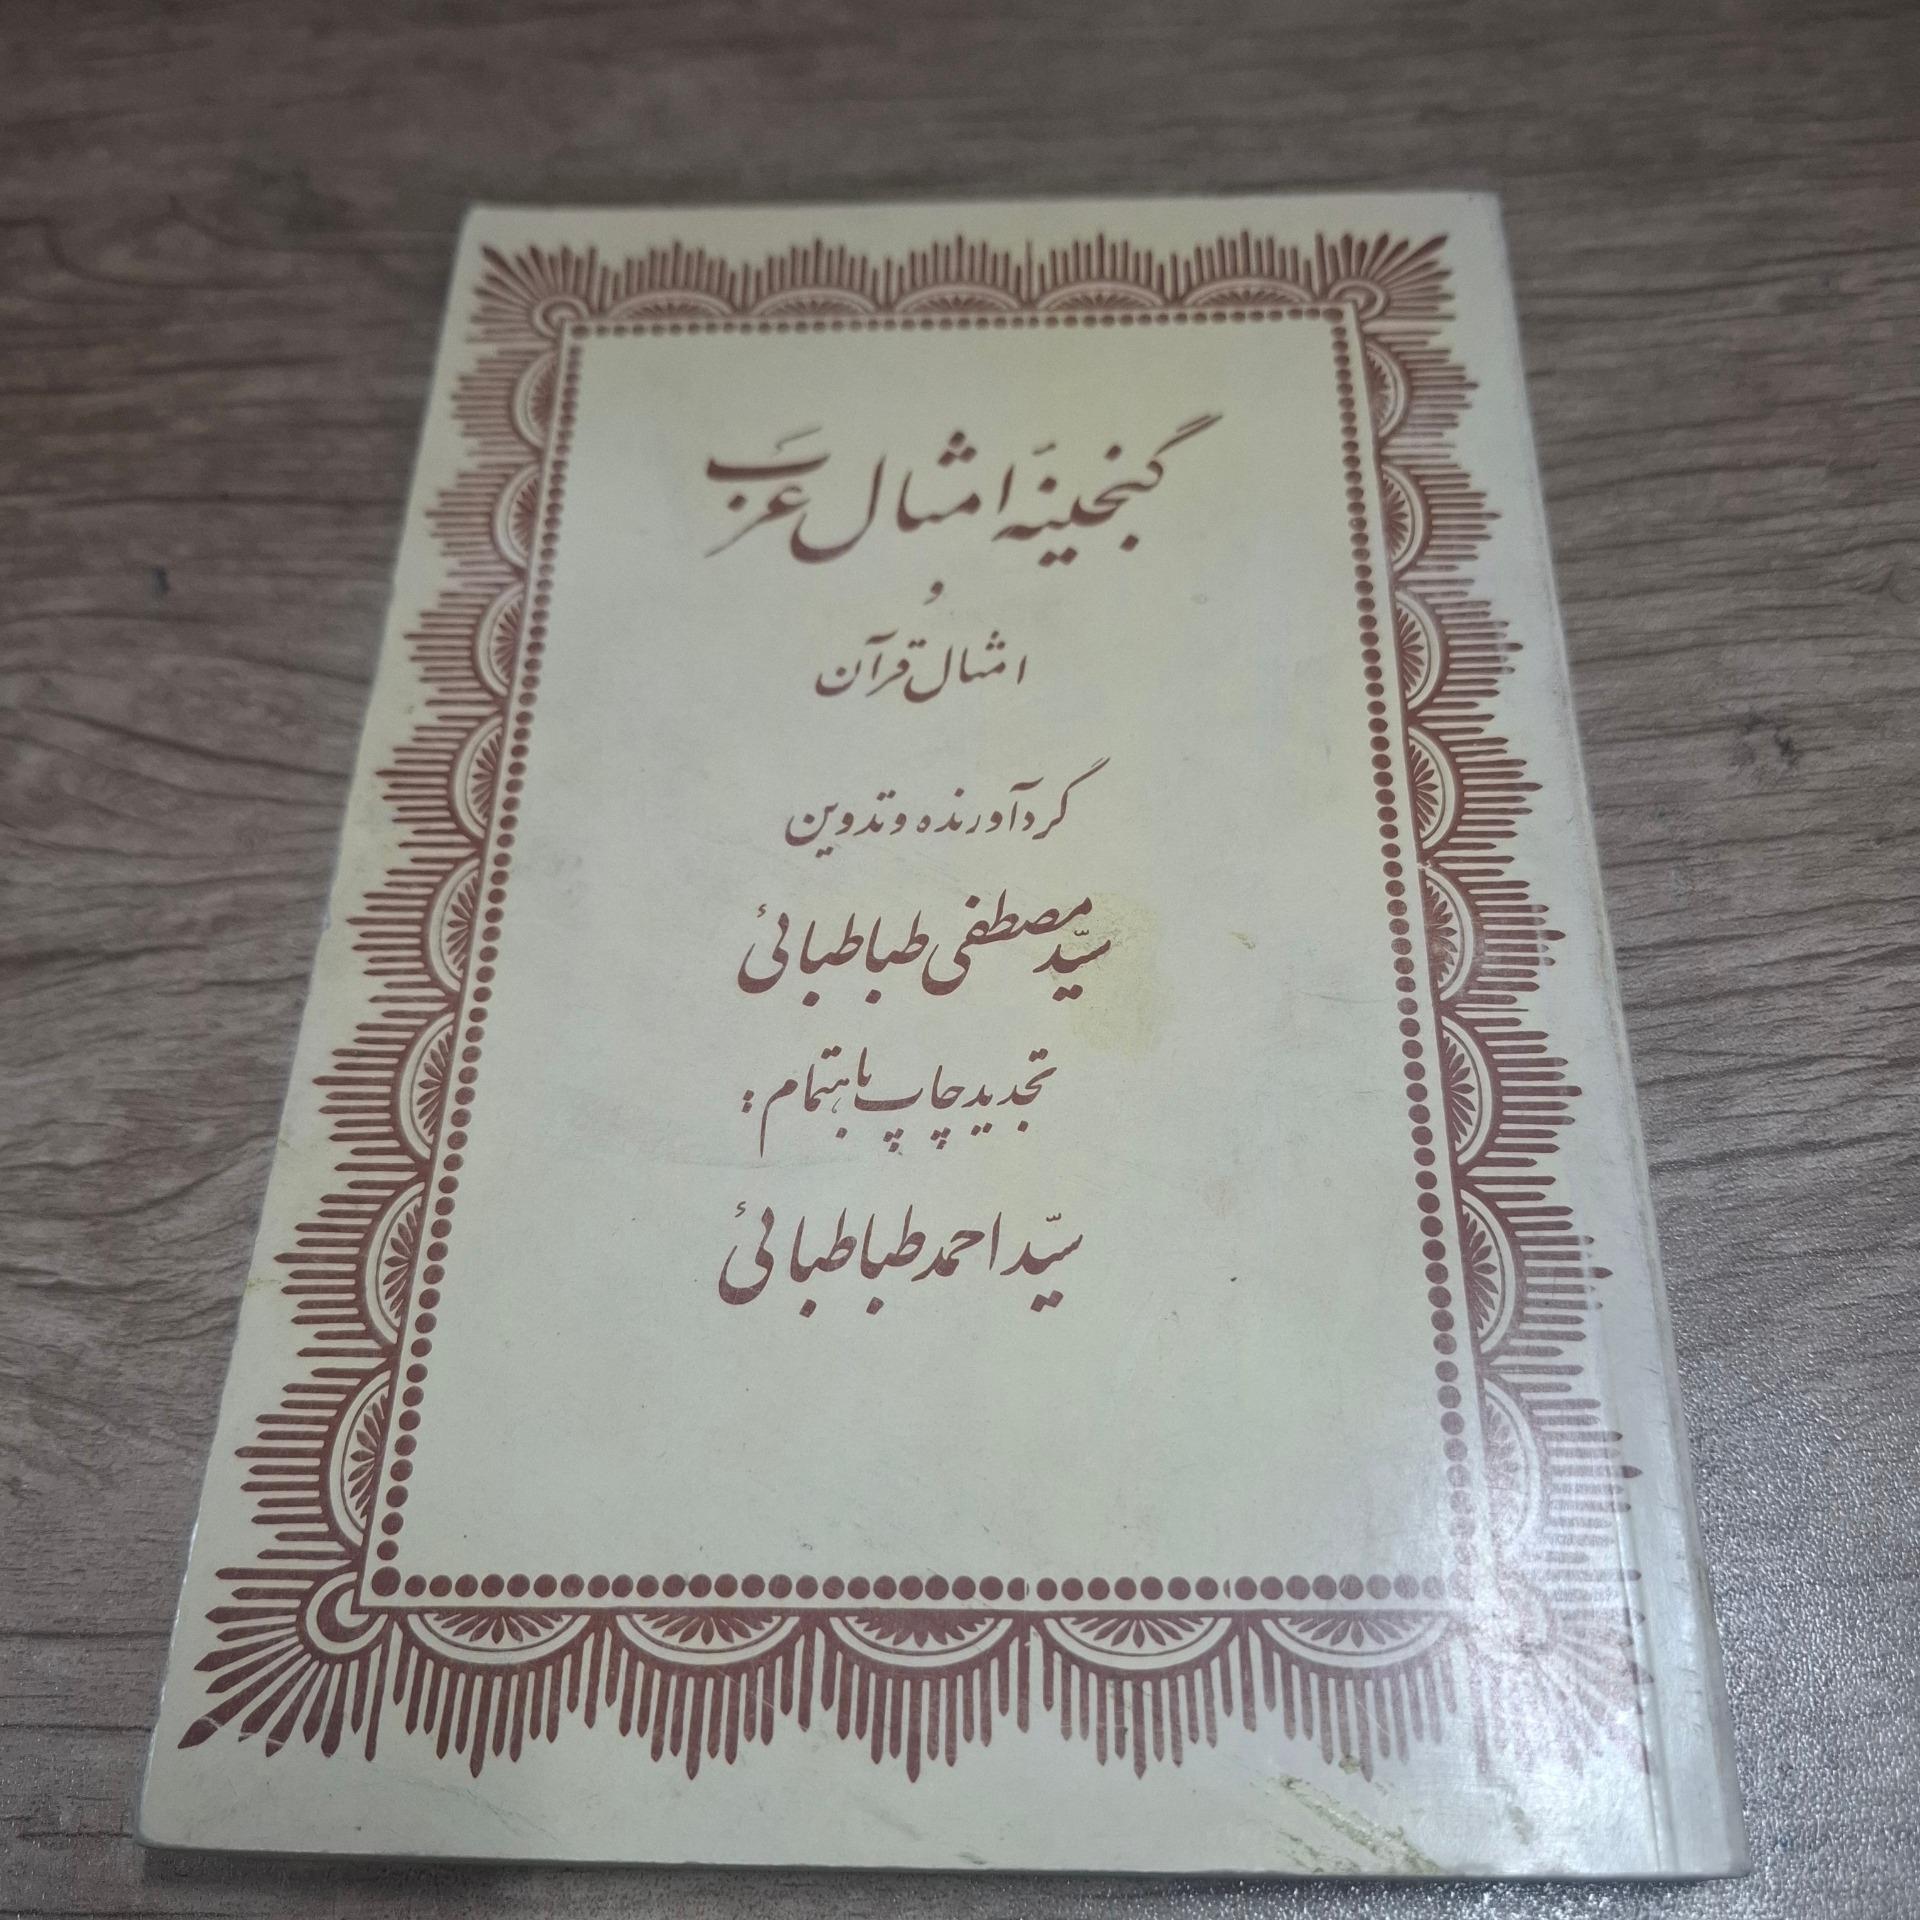 گنجینهٔ امثال عَرَب
و
امثال قرآن
گردآورنده و تدوین
سیّد مصطفی طباطبائی
تجدید چاپ باهتمام :
سیّد احمد طباطبائی